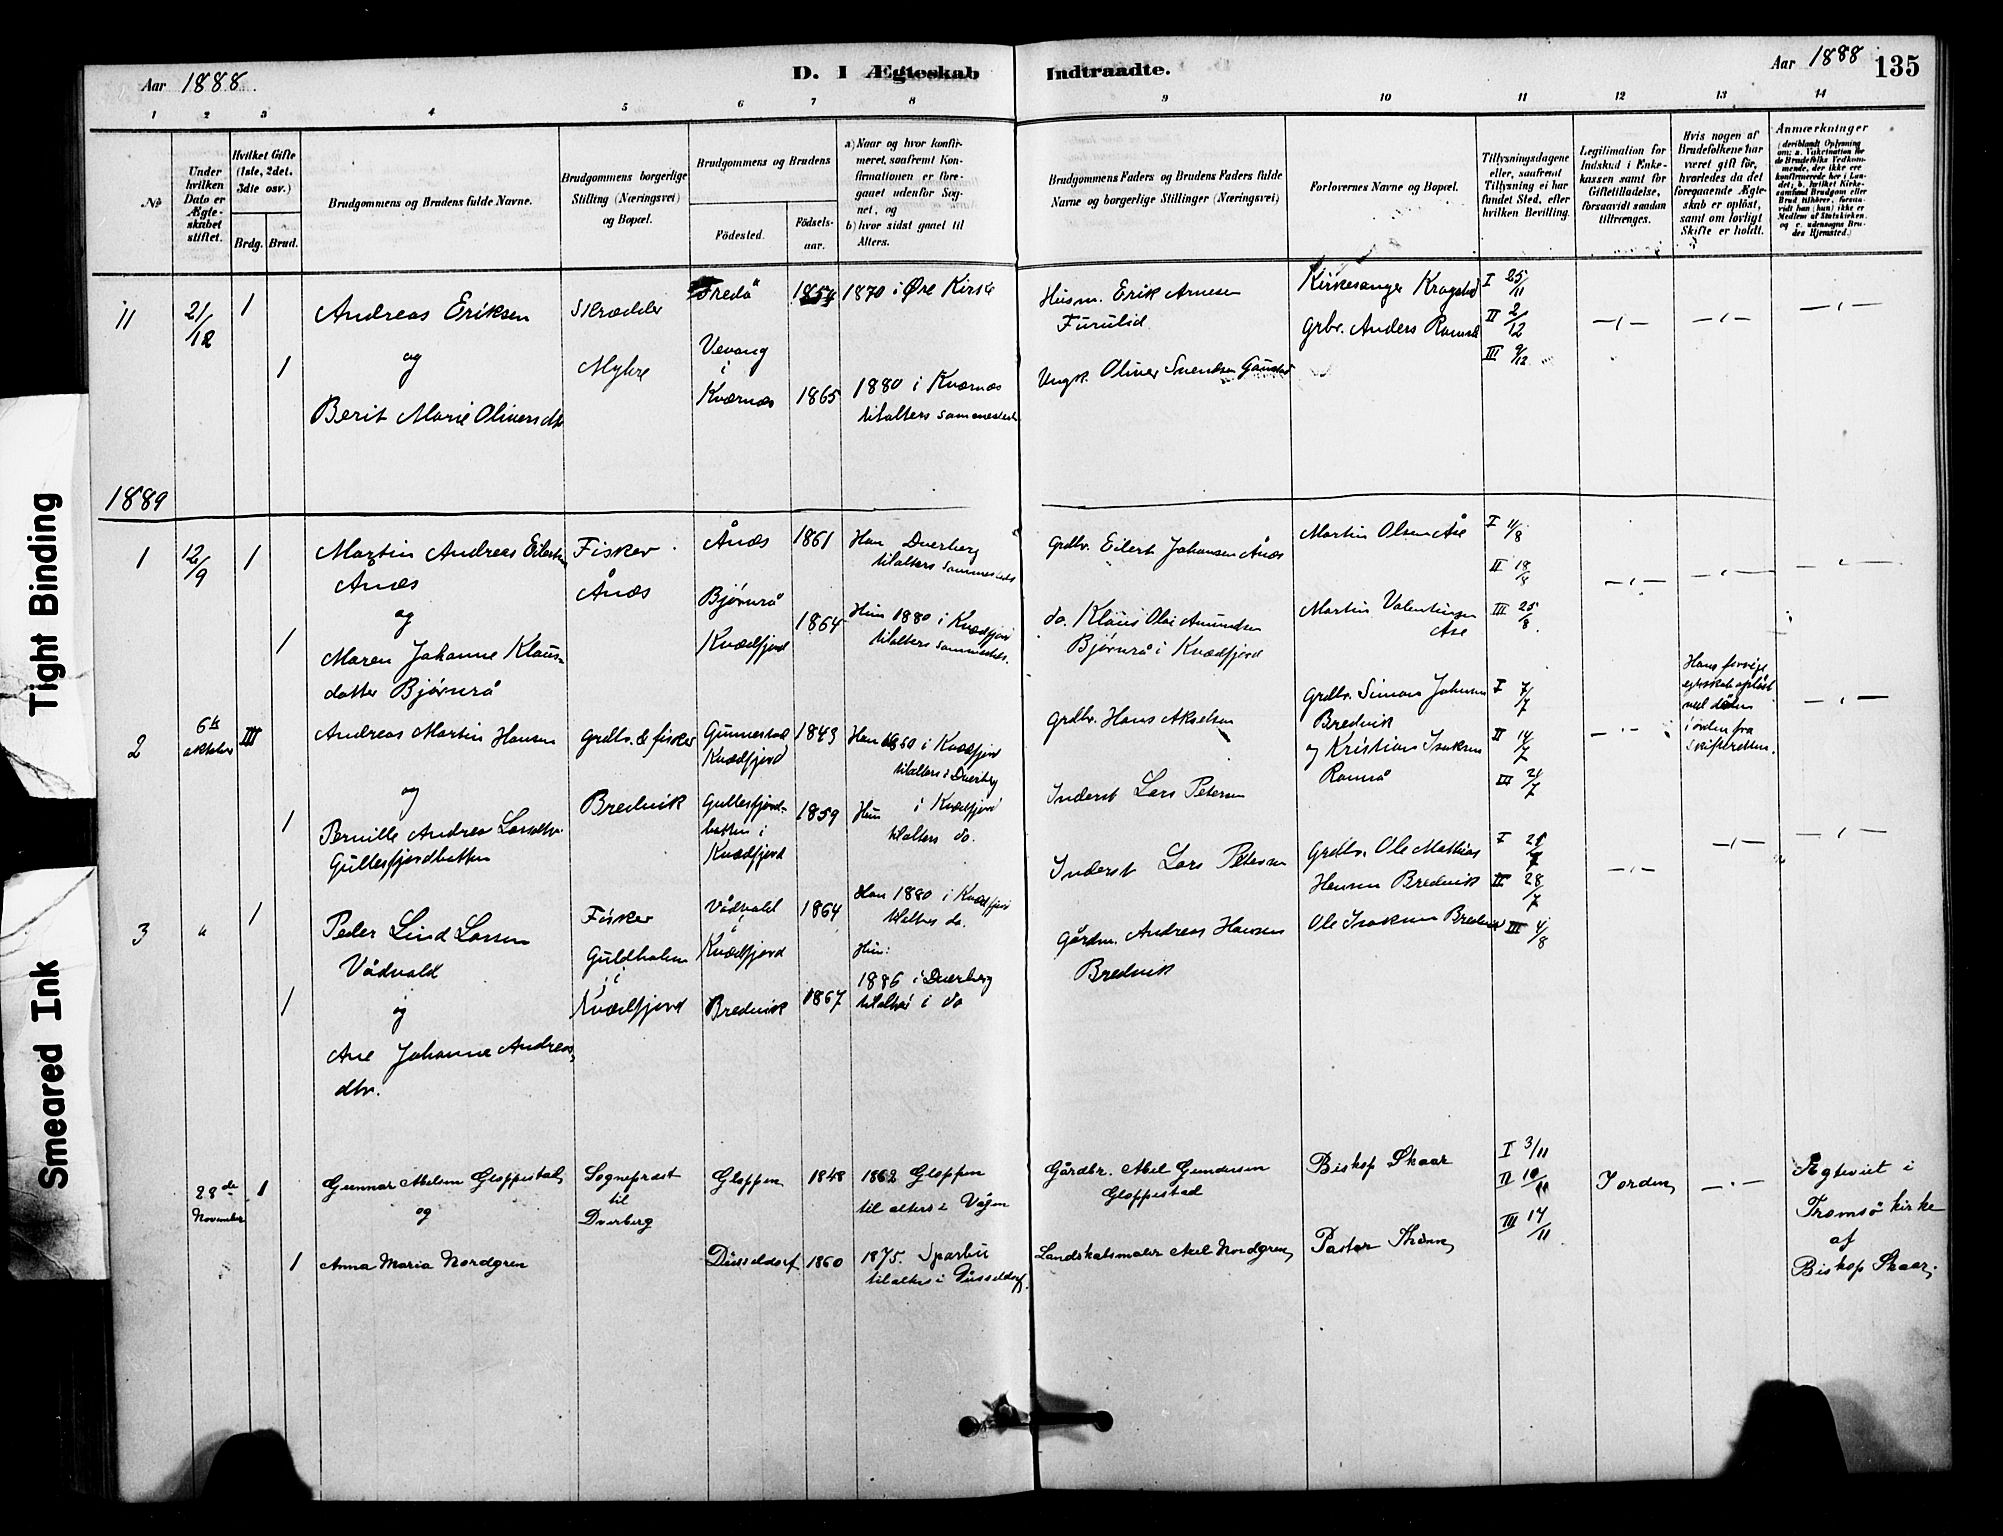 Aar 1888.
D. I Ægteskab Indtraadte.
Aar 1888 135
1 2 3 4 5 6 7 8 9 10 11 12 13 14
№
Under hvilken Dato er Ægteskabet stiftet.
Hvilket Gifte (1ste, 2det, 3die osv.)
Brdg. Brud.
Brudgommens og Brudens fulde Navne.
Brudgommens borgerlige Stilling (Næringsvei) og Bopæl.
Brudgommens og Brudens
Fødested.
Fødselsaar.
a) Naar og hvor konfirmeret, saafremt Konfirmationen er foregaaet udenfor Sognet, og
b) hvor sidst gaaet til Alters.
Brudgommens Faders og Brudens Faders fulde Navne og borgerlige Stillinger (Næringsvei)
Forlovernes Navne og Bopæl.
Tillysningsdagene eller, saafremt Tillysning ei har fundet Sted, efter hvilken Bevilling.
Legitimation for Indskud i Enkekassen samt for Giftetilladelse, forsaavidt saadan tiltrænges.
Hvis nogen af Brudefolkene har været gift før, hvorledes da det foregaaende Ægteskab er opløst, samt om lovligt Skifte er holdt.
Anmærkninger
(deriblandt Oplysning om: a. Vakcination for de Brudefolks Vedkommende, der ikke ere konfirmerede her i Landet; b. hvilket Kirkesamfund Brudgom eller Brud tilhører, forsaavidt han (hun) ikke er Medlem af Statskirken, og c. udensogns Brudes Hjemsted.)
11 21/12 1
Andreas Eriksen
og
1 Berit Marie Oliversdtr
Skrædder
Myhre
Fredø
Vevang
i
Kværnæs
1854
1865
1870 i Øre Kirke
1880 i Kværnæs
tilalters sammesteds
Husm. Erik Arnesen
Furulid.
Ungk. Oliver Svendsen Gaustad
Kirkesanger Kragstad
Grbr. Anders Ramsø
I 25/11
II 2/12
III 9/12
1889
1 12/9 1
Martin Andreas Eilertsen
Ånæs
og
1 Maren Johanne Klaus-
datter Bjørnrå
Fisker
Ånæs
Ånæs
Bjørnrå
Kvædfjord
1861
1864
Han Dverberg
tilalters sammesteds
Hun 1880 i Kvædfjord
tilalters sammesteds.
Grdbr. Eilert Johansen Ånæs
do. Klaus Olai Amundsen
Bjørnrå i Kvædfjord
Martin Olsen Åse
Martin Valentinsen
Åse
I 11/8
II 18/8
III 25/8
2 6te oktober III
Andreas Martin Hansen
og
1 Pernille Andrea Larsdtr.
Gullesfjordbotten
Grdbr. & fisker
Bredvik
Gunnestad
Kvædfjord
Gullesfjord-
botten i
Kvædfjord
1843
1859
Han 1860 i Kvædfjord
tilalters i Dverberg
Hun i Kvædfjord
tilalters do.
Grdbr. Hans Akselsen
Inderst Lars Petersen
Grdbr. Simon Johnsen
Bredvik
og Kristian Isaksen
Ramså
I 7/7
II 14/7
III 21/7
Hans forrige
egteskab opløst
ved døden
i orden fra
skifteretten.
3 " 1
Peder Lind Larsen
Vådvald
og
1 Ane Johanne Andreas-
dtr.
Fisker
Guldholm
i
Kvædfjord
Vådvald
Kvædfjord
Bredvik
1864
1867
Han 1880 i Kvædfjord
tilalters do.
Hun:
1886 i Dverberg
tilalters i do
Inderst Lars Petersen
Gårdm. Andreas Hansen
Bredvik
Grdbr. Ole Mathias
Hansen Bredvik
Ole Isaksen Bredvik
I 21/7
II 28/7
III 4/8
28de November 1
Gunnar Abelsen Gloppestad
og
1 Anna Maria Nordgren
Sogneprest
til
Dverberg
Gloppen
Düsseldorf
1848
1860
1862 Gloppen
til alters i Vågan
1875. Sparbu
tilalters i Düsseldorf.
Gårdbr. Abel Gundersen
Gloppestad
Landskabsmaler Axel Nordgren
Biskop Skaar
Pastor
I 3/11
II 10/11
III 17/11
I orden
Ægteviet i
Tromsø kirke
af
Biskop Skaar.
Tight Binding
Smeared Ink